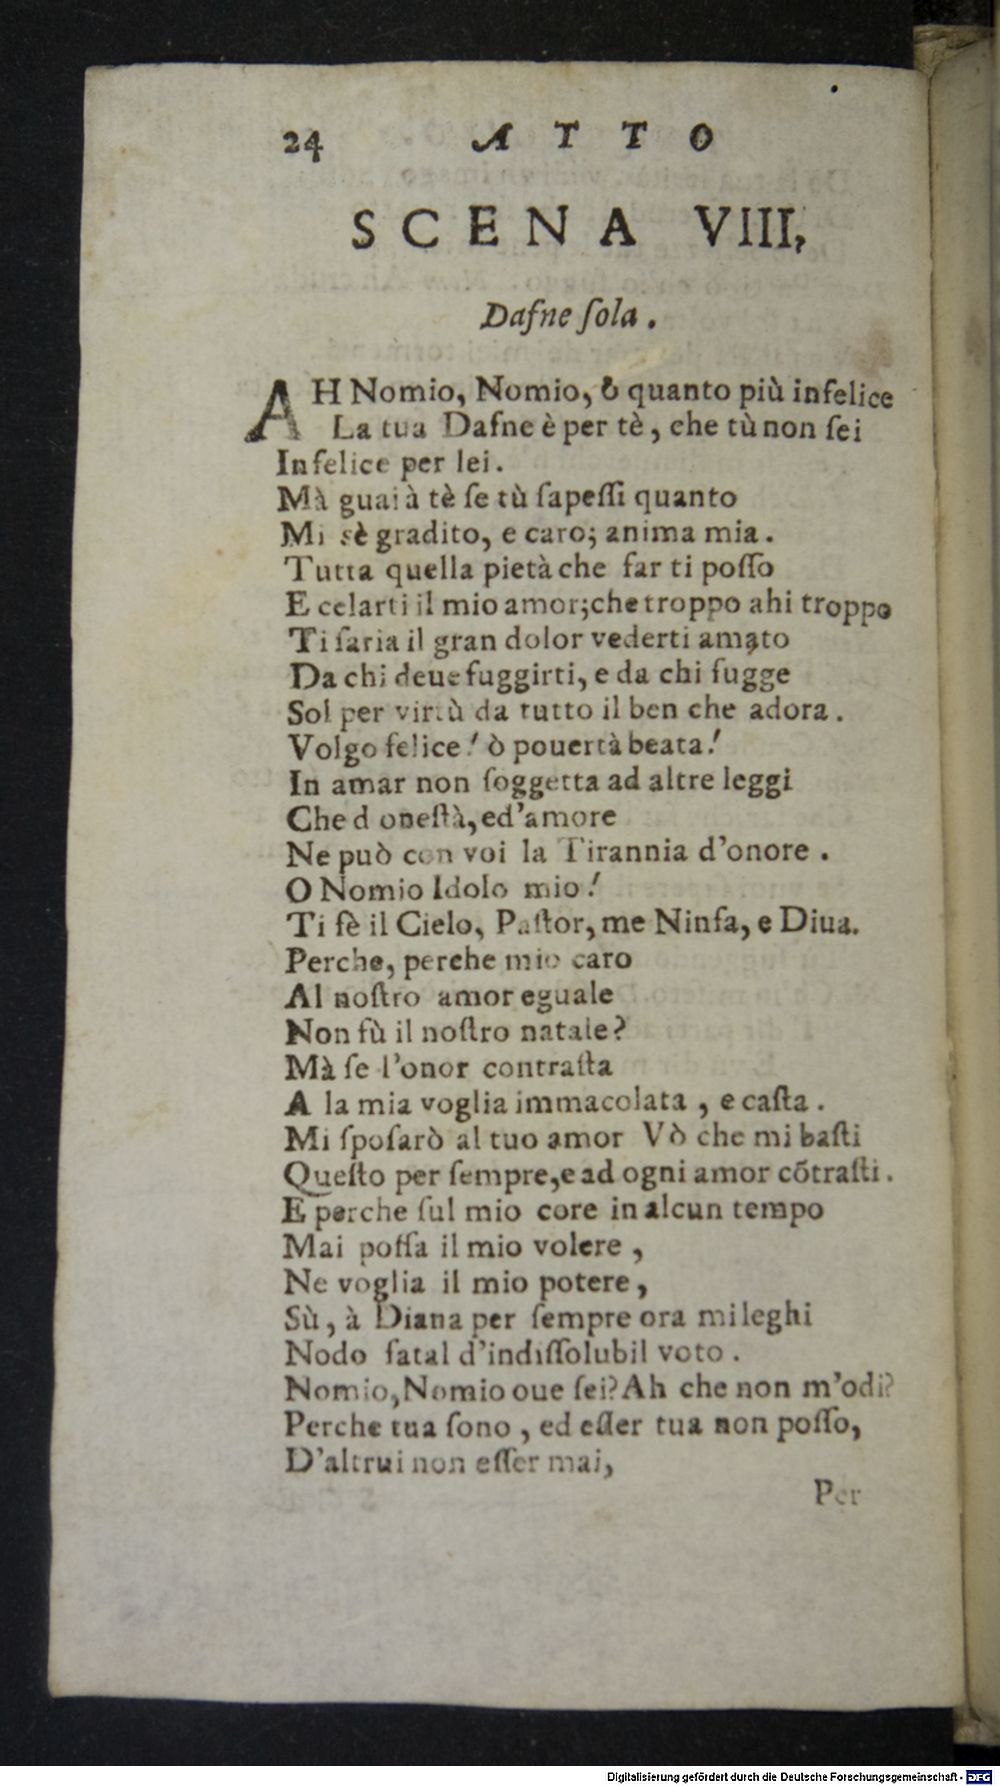 24 ATTO
SCENA VIII,
Dafne ſola.
AH Nomio, Nomio, ò quanto più infelice
La tua Dafne è per tè, che tù non ſei
Infelice per lei.
Mà guai à tè ſe tù ſapeſſi quanto
Mi sè gradito, e caro; anima mia.
Tutta quella pietà che far ti poſſo
E celarti il mio amor; che troppo ahi troppo
Ti ſaria il gran dolor vederti amato
Da chi deue fuggirti, e da chi fugge
Sol per virtù da tutto il ben che adora.
Volgo felice! ò pouertà beata!
In amar non ſoggetta ad altre leggi
Che d oneſtà, ed'amore
Ne può con voi la Tirannia d'onore.
O Nomio Idolo mio!
Ti fè il Cielo, Paſtor, me Ninfa, e Diua.
Perche, perche mio caro
Al noſtro amor eguale
Non fù il noſtro natale?
Mà ſe l'onor contraſta
A la mia voglia immacolata, e caſta.
Mi ſpoſarò al tuo amor Vò che mi baſti
Queſto per ſempre, e ad ogni amor cõtraſti.
E perche ſul mio core in alcun tempo
Mai poſſa il mio volere,
Ne voglia il mio potere,
Sù, à Diana per ſempre ora mi leghi
Nodo fatal d'indiſſolubil voto.
Nomio, Nomio oue ſei? Ah che non m'odi?
Perche tua ſono, ed eſſer tua non poſſo,
D'altrui non eſſer mai,
Per
Digitalisierung gefördert durch die Deutsche Forschungsgemeinschaft - DFG